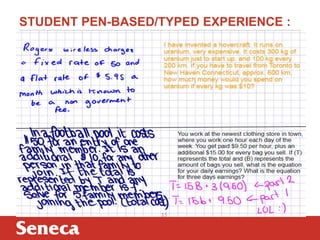 STUDENT PEN-BASED/TYPED EXPERIENCE :
Rogers wireless charges
a fixed rate of 50 and
a flat rate of $5.95 a
month which is known to
be a non goverment
fee.
I have invented a hovercraft. It runs on
uranium, very expensive. It costs 300 kg of
uranium just to start up, and 100 kg every
200 km. If you have to travel from Toronto to
New Haven Connecticut, approx. 600 km,
how much money would you spend on
uranium if every kg was $10?
In a football pool it costs
$50 for an entry of one
family member. It is an
additional $10 for any other
person in that family to
join. If the total is
represented by T and any
additional member is
Solve for 5 family members
joining the pool (total cost)
You work at the newest clothing store in town,
where you work one hour each day of the
week. You get paid $9.50 per hour, plus an
additional $15.00 for every bag you sell. If (T)
represents the total and (B) represents the
amount of bags you sell, what is the equation
for your daily earnings? What is the equation
for three days earnings?
T=15B+3(9.50) ← part 2
T=15b+9.50 ← part 1
LOL :)
Seneca